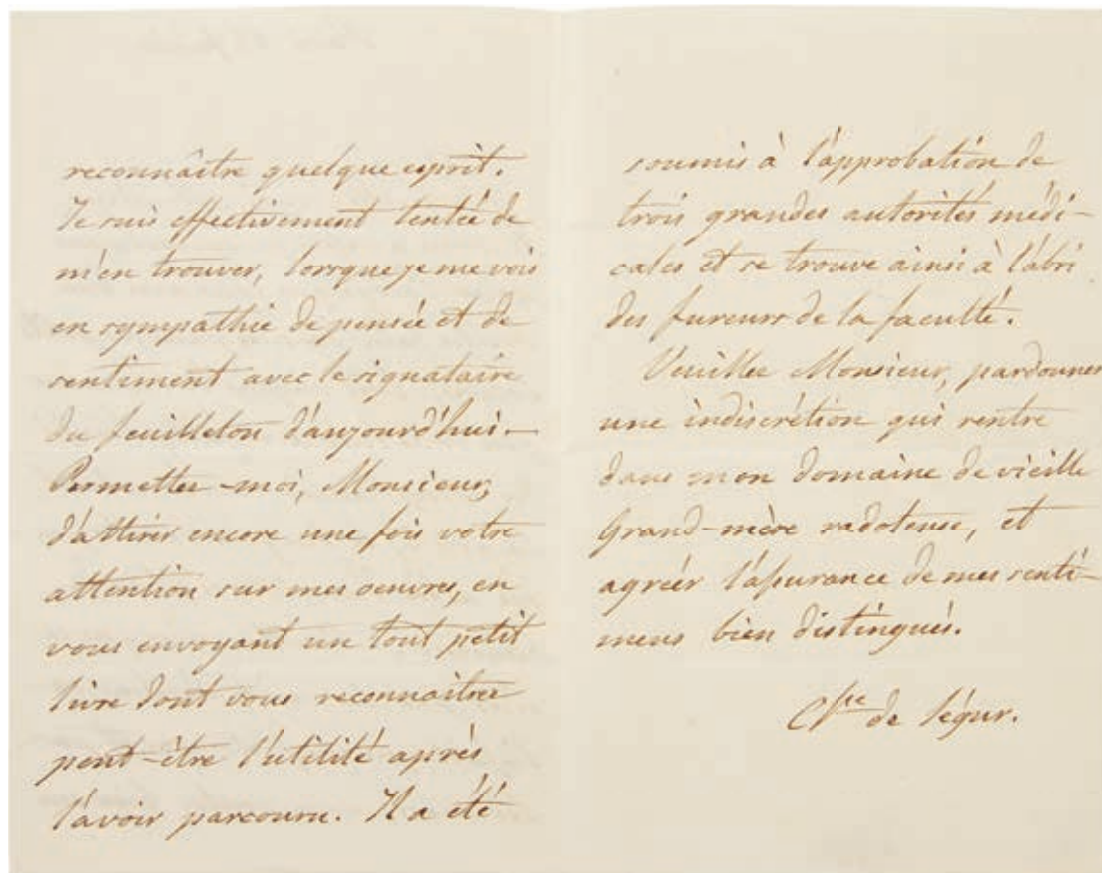 reconnaître quelque esprit.
Je suis effectivement tentée de
m'en trouver, lorsque je me vois
en sympathie de pensée et de
sentiment avec le signataire
du feuilleton d'aujourd'hui.—
Permettez-moi, Monsieur,
d'attirer encore une fois votre
attention sur mes oeuvres, en
vous envoyant un tout petit
livre dont vous reconnaitrez
peut-être l'utilité après
l'avoir parcouru. Il a été
soumis à l'approbation de
trois grandes autorités médi-
cales et se trouve ainsi à l'abri
des fureurs de la faculté.
Veuillez Monsieur, pardonner
une indiscrétion qui rentre
dans mon domaine de vieille
Grand-mère radoteuse, et
agréer l'assurance de mes senti-
mens bien distingués.
Ctsse de Ségur.